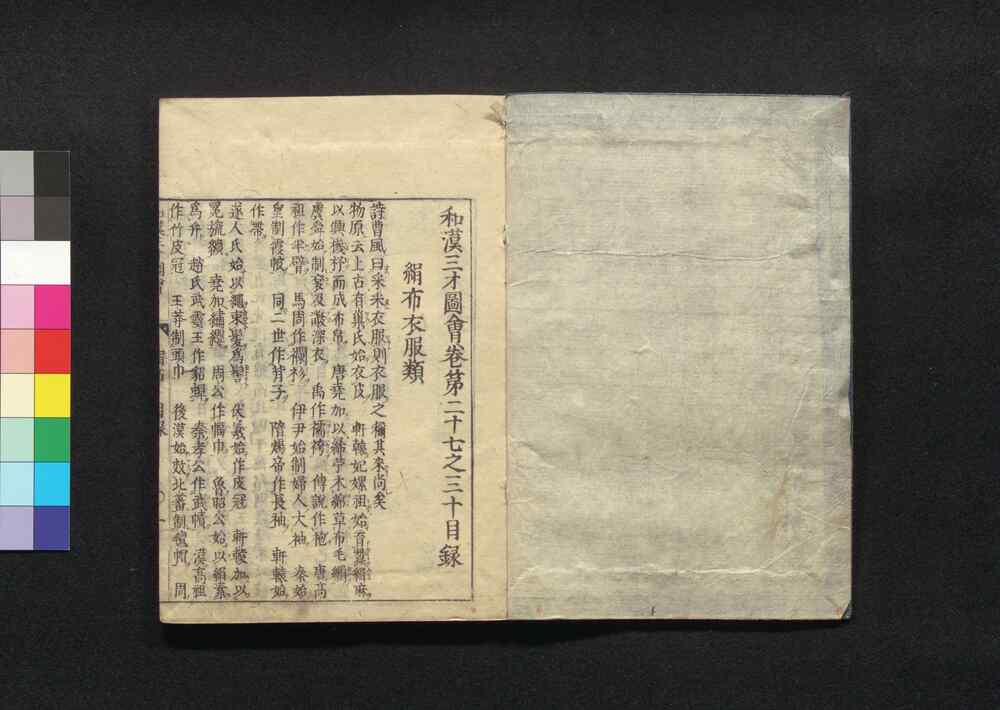 和漢三才圖會卷第二十七之三十目録
絹布衣服類
詩曹風曰采采衣服則衣服之稱其來尚矣
物原云上古有巢氏始衣皮 軒轅妃嫘祖始育蠶緝麻
以興機杼而成布帛 唐堯加以絺苧木綿草布毛繝
虞舜始制袞及黻深衣 禹作襦袴 傅説作袍 唐高
祖作半臂 馬周作襴衫 伊尹始制婦人大袖 秦始
皇制霞帔 同二世作背子 隋煬帝作長袖 軒轅始
作帶
遂人氏始以繩束髮爲髻 伏羲始作皮冠 軒轅加以
冕旒 堯加繡纓 周公作幅巾 魯昭公始以絹素
爲弁 趙氏武靈王作貂蟬 秦孝公作武幘 漢高祖
作竹皮冠 王莽制頭巾 後漢始效北蕃制氊 周